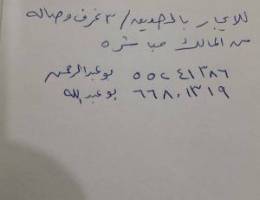 للايجار بالصديق / ٣ غرف وصاله
من المالك مباشره
٥٥٥٤١٣٨٦ بوعبدالرحمن
٦٦٨٠١٣١٩ بو عبدالله